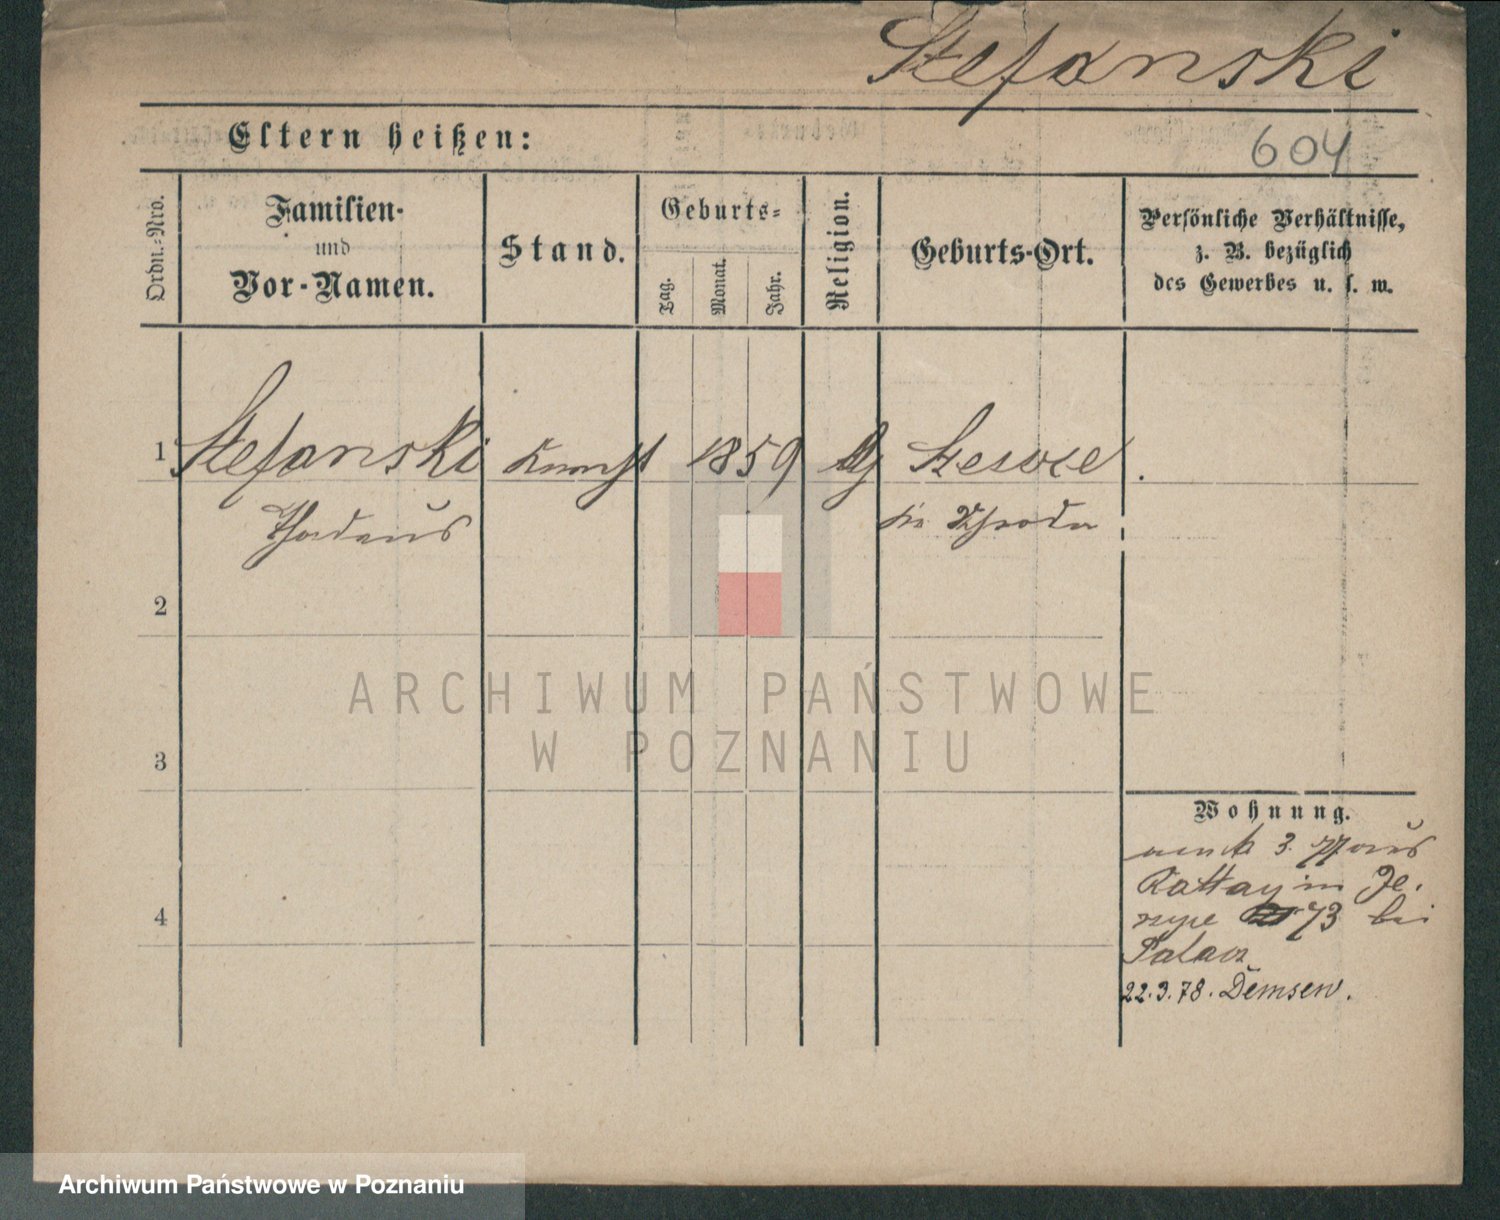 Stefanski
Eltern heißen:
604
Ordn.-Nro.
Familien-
und
Vor-Namen.
Stand.
Geburts-
Tag.
Monat.
Jahr.
Religion.
Geburts-Ort.
Persönliche Verhältnisse,
z. B. bezüglich
des Gewerbes u. s. w.
1 Stefanski Knecht 1859
Thadeus
2
ARCHIWUM PAŃSTWOWE
W POZNANIU
3
Wohnung.
3.
Rattay in Je-
rzyce 73 bei
4
Palacz
22.3.78. Demsen.
Archiwum Państwowe w Poznaniu